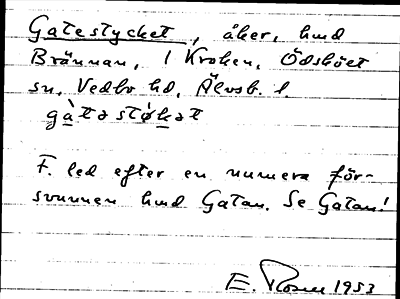 Gatestycket, åker, hmd
Brännan, 1 Kroken, Ödskölt
sn, Vedbo hd, Älvsb. l.
gàtəstøkət
F. led efter en numera för-
svunnen hmd Gatan. Se Gatan!
E. Rosén 1953